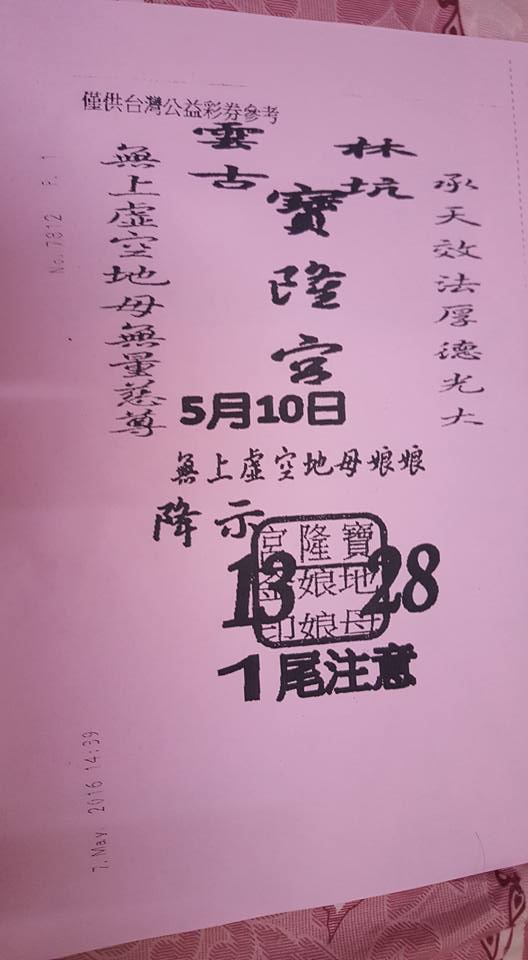 僅供台灣公益彩券參考
雲林
古坑
寶隆宮
承天效法厚德光大
無上虛空地母無量慈尊
5月10日
無上虛空地母娘娘
降示
13 28
寶隆宮
地娘金
母娘印
1尾注意
No. 7812 P. 1
7. May. 2016 14:39